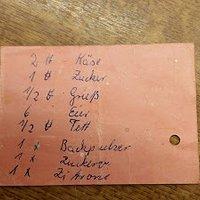 2 ℔ Käse
1 ℔ Zucker
1/2 ℔ Grieß
6 Eier
1/2 ℔ Fett
1 x Backpulver
1 x Zucker
1 x Zitrone